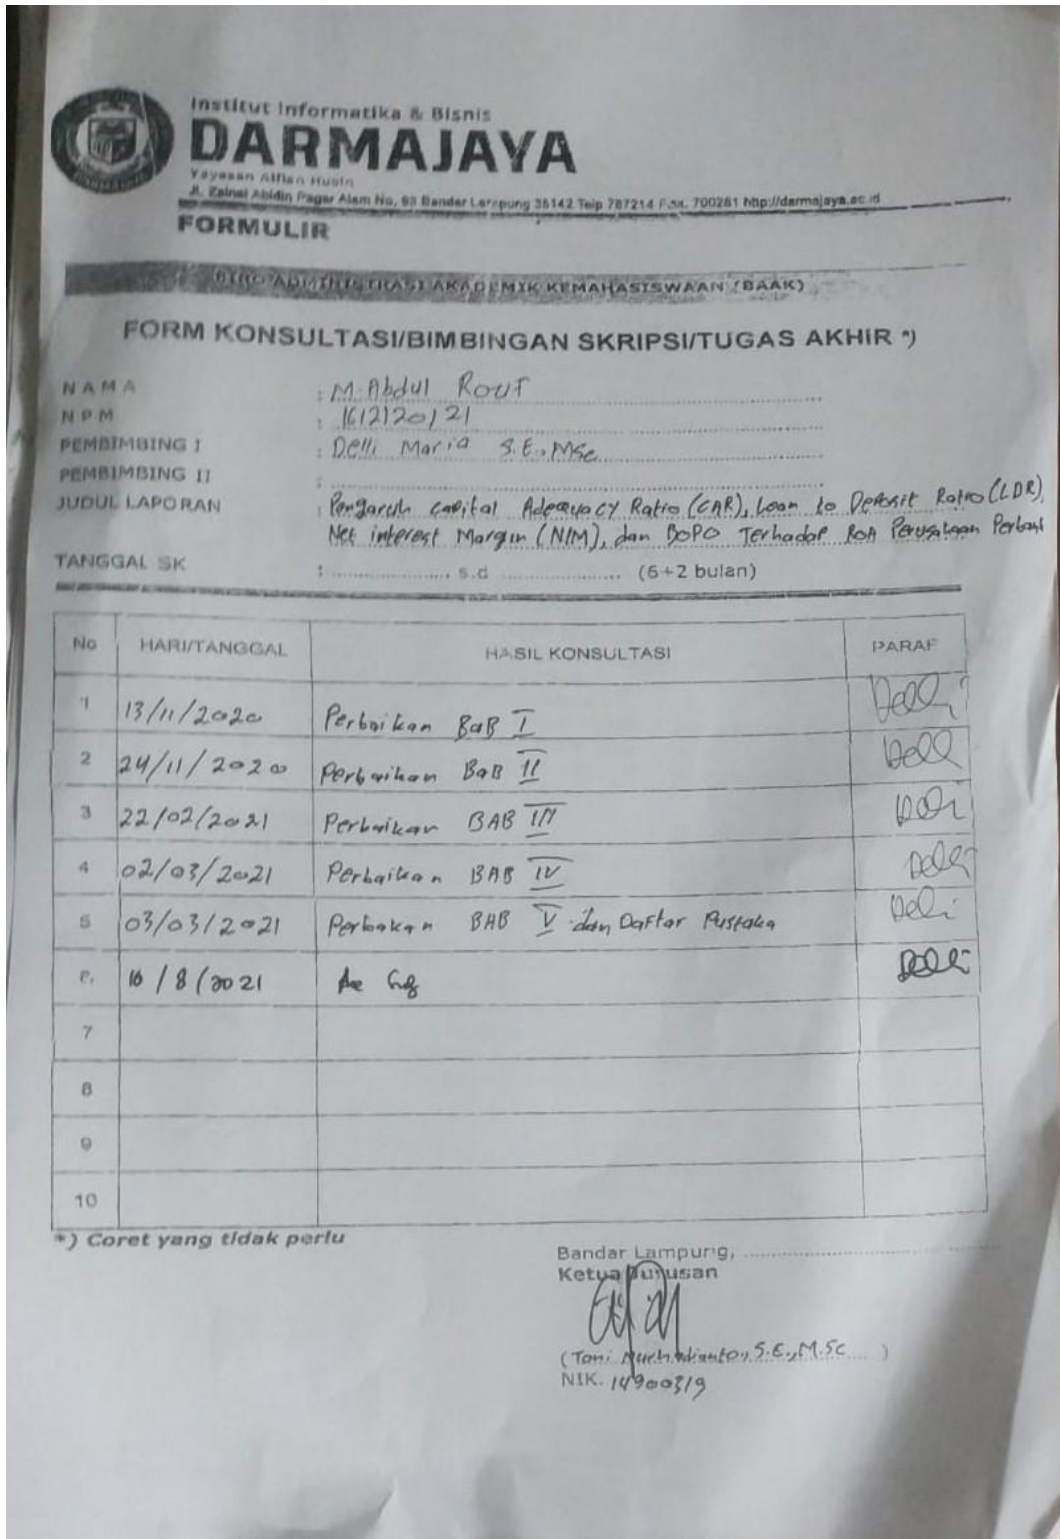 Institut Informatika & Bisnis
DARMAJAYA
Yayasan Alfian Husin
Jl. Zainal Abidin Pagar Alam No, 93 Bandar Lampung 35142 Telp 787214 Fax. 700261 http://darmajaya.ac.id
FORMULIR
BIRO ADMINISTRASI AKADEMIK KEMAHASISWAAN (BAAK)
FORM KONSULTASI/BIMBINGAN SKRIPSI/TUGAS AKHIR *)
NAMA : M. Abdul Rouf
NPM : 1612120121
PEMBIMBING I : Delli Maria S.E., MSc
PEMBIMBING II :
JUDUL LAPORAN : Pengaruh capital Adequacy Ratio (CAR), Loan to Deposit Ratio (LDR),
Net interest Margin (NIM), dan BOPO Terhadap ROA Perusahaan
TANGGAL SK : .................... s.d .................... (6+2 bulan)
No HARI/TANGGAL HASIL KONSULTASI PARAF
1 13/11/2020 Perbaikan BaB I
2 24/11/2020 Perbaikan BaB II
3 22/02/2021 Perbaikan BAB III
4 02/03/2021 Perbaikan BAB IV
5 03/03/2021 Perbakan BAB V dan Daftar Pustaka
6. 16/8/2021
7
8
9
10
*) Coret yang tidak perlu
Bandar Lampung, ....................
Ketua Jurusan
(Toni Nurhadianto, S.E., M.Sc )
NIK. 14900319